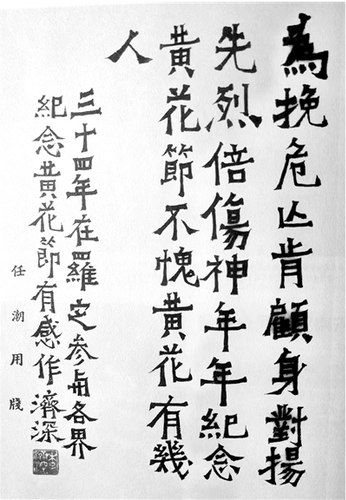 為挽危亾肯顧身對揚
先烈倍傷神年年紀念
黄花節不愧黄花有幾
人
三十四年在羅定參与各界
紀念黄花節有感作濟深
任潮用牋